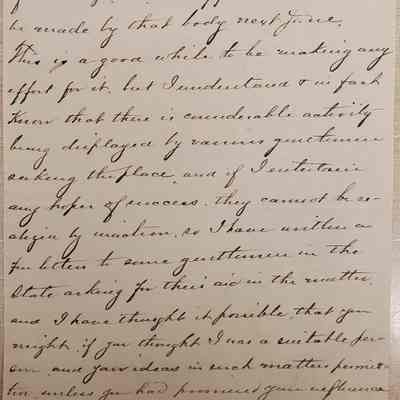 be made by that body next June.
This is a good while to be making any
effort for it, but I understand & in fact
Know that there is considerable activity
being displayed by various gentlemen
seeking the place, and if I entertain
any hopes of success, they cannot be re-
alized by inaction, so I have written a
few letters to some gentlemen in the
State asking for their aid in the matter,
and I have thought it possible, that you
might, if you thought I was a suitable per-
son and your ideas in such matters permit-
ted, unless you had promised your influence